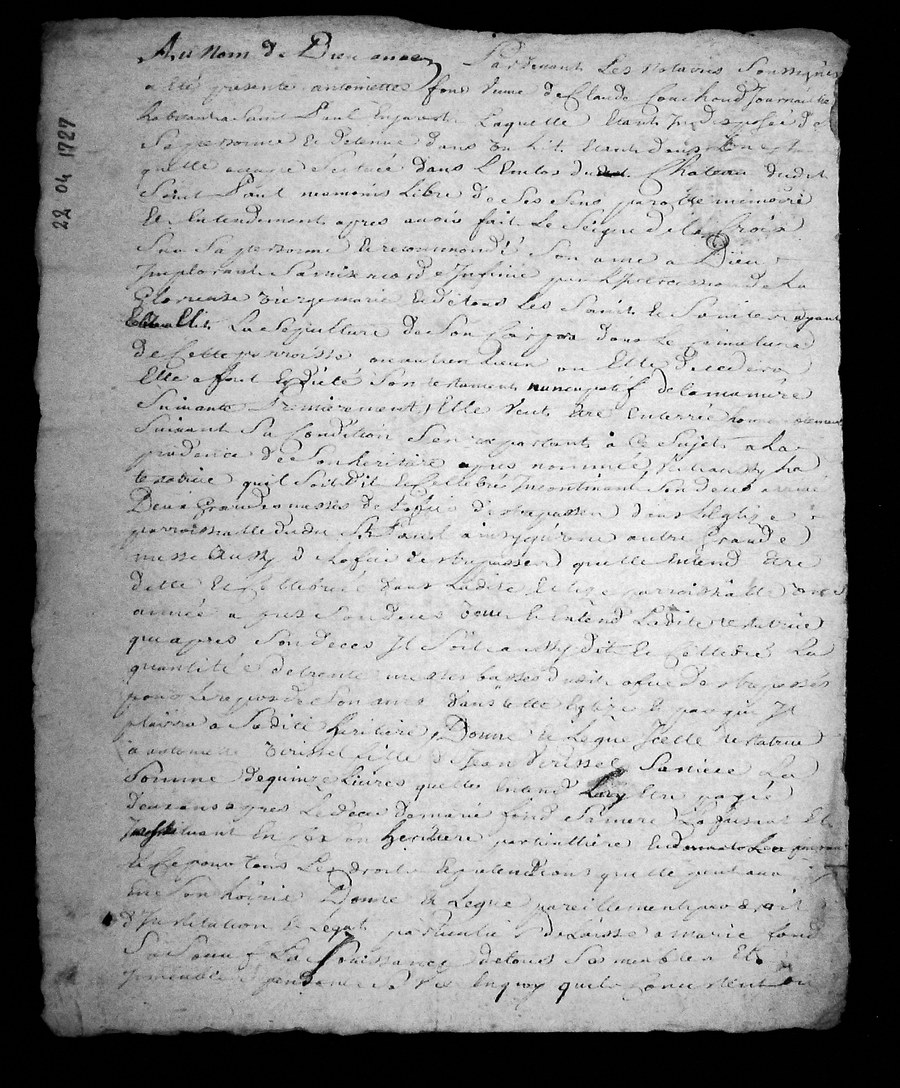 Au nom de Dieu amen Pardevant Les Notaires Soussignés
a esté presente antoinette fond veuve de Claude Couchoud Journalie
habitante a Saint Paul En Jarest Laquelle Etant Indisposée de
Sa personne Et detenue dans un Lit Etant dans
quelle occupe Scituée dans L'Enclos du Chateau dudit
Saint Paul neamoins Libre de Ses Sens parolle memoire
Et Entendement apres avoir fait Le Seigne de la Croix
Sur Sa personne Et recommandé Son ame a Dieu
Implorant Sa misericorde Infinie par L'Intercession de La
Glorieuse vierge marie Et de tous Les Saints Et Saintes ayant
La Sepulture de Son Corps dans Le Cimetiere
de Cette parroisse ou autre Lieu ou Elle decedera
Elle a fait Et dicté Son testament nuncupatif de la maniere
Suivante Premierement Elle veut Etre Enterrée
Suivant Sa Condition Sen raportant a Ce Sujet a La
prudence de Son heritiere apres nommée Veut aussy La
testatrice quil Soit dit Et Cellebré Incontinant Son deces arrivé
Deux Grandes messes de Lofice des trepassez dans LEglise
parroissialle dudit St Paul ainsy qu'une autre Grande
messe aussy de Lofice des trepassez quelle Entend Etre
ditte Et Cellebrée dans Ladite Eglise parroissialle une
année apres Son deces veut Et Entend Ladite testatrice
qu apres Son deces Il Soit aussy dit Et Cellebré La
quantité de trente messes basses dudit ofice des trepassés
pour Le repos de Son ame dans telle Eglise Et par qui Il
plairra a Sadite heritiere, Donne Et Legue Icelle testatrice
a antoinette Virissel fille de Jean Virissel Sa niece La
Somme de quinze Livres quelle Entend Luy Etre payée
deux ans apres Le deces de marie fond Sa mere
Instituant En Ce Son heritiere particulliere
Et Ce pour tous Les droits Et pretentions quelle peut avoir
En Son hoirie Donne Et Legue pareillement par droit
d'Institution Et Legat particulier delaisse a marie fond
Sa Soeur La Jouissance de tous Ses meubles Et
Immeubles pendant Sa vie En quoy quils Consistent ou
22 04 1727